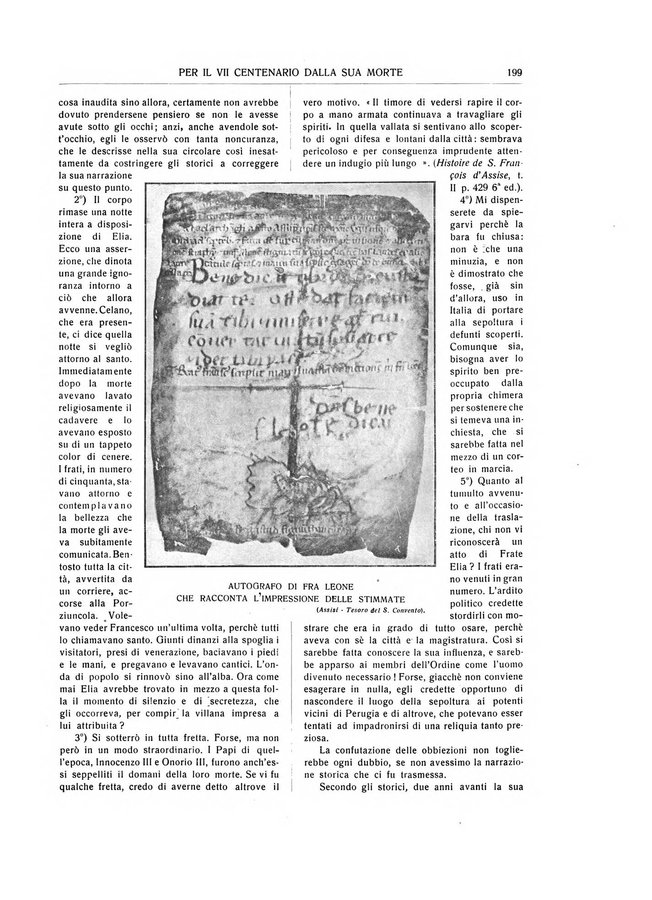 PER IL VII CENTENARIO DALLA SUA MORTE
199
cosa inaudita sino allora, certamente non avrebbe
dovuto prendersene pensiero se non le avesse
avute sotto gli occhi; anzi, anche avendole sot-
t'occhio, egli le osservò con tanta noncuranza,
che le descrisse nella sua circolare così inesat-
tamente da costringere gli storici a correggere
la sua narrazione
su questo punto.
2°) Il corpo
rimase una notte
intera a disposi-
zione di Elia.
Ecco una asser-
zione, che dinota
una grande igno-
ranza intorno a
ciò che allora
avvenne. Celano,
che era presen-
te, ci dice quella
notte si vegliò
attorno al santo.
Immediatamente
dopo la morte
avevano lavato
religiosamente il
cadavere e lo
avevano esposto
su di un tappeto
color di cenere.
I frati, in numero
di cinquanta, sta-
vano attorno e
contemplavano
la bellezza che
la morte gli ave-
va subitamente
comunicata. Ben-
tosto tutta la cit-
tà, avvertita da
un corriere, ac-
corse alla Por-
ziuncola. Vole-
vano veder Francesco un'ultima volta, perchè tutti
lo chiamavano santo. Giunti dinanzi alla spoglia i
visitatori, presi di venerazione, baciavano i piedi
e le mani, e pregavano e levavano cantici. L'on-
da di popolo si rinnovò sino all'alba. Ora come
mai Elia avrebbe trovato in mezzo a questa fol-
la il momento di silenzio e di secretezza, che
gli occorreva, per compir la villana impresa a
lui attribuita?
3°) Si sotterrò in tutta fretta. Forse, ma non
però in un modo straordinario. I Papi di quel-
l'epoca, Innocenzo III e Onorio III, furono anch'es-
si seppelliti il domani della loro morte. Se vi fu
qualche fretta, credo di averne detto altrove il
vero motivo. « Il timore di vedersi rapire il cor-
po a mano armata continuava a travagliare gli
spiriti. In quella vallata si sentivano allo scoper-
to di ogni difesa e lontani dalla città: sembrava
pericoloso e per conseguenza imprudente atten-
dere un indugio più lungo ». (Histoire de S. Fran-
çois d'Assise, t.
II p. 429 6ª ed.).
4°) Mi dispen-
serete da spie-
garvi perchè la
bara fu chiusa:
non è che una
minuzia, e non
è dimostrato che
fosse, già sin
d'allora, uso in
Italia di portare
alla sepoltura i
defunti scoperti.
Comunque sia,
bisogna aver lo
spirito ben pre-
occupato dalla
propria chimera
per sostenere che
si temeva una in-
chiesta, che si
sarebbe fatta nel
mezzo di un cor-
teo in marcia.
5°) Quanto al
tumulto avvenu-
to e all'occasio-
ne della trasla-
zione, chi non vi
riconoscerà un
atto di Frate
Elia? I frati era-
no venuti in gran
numero. L'ardito
politico credette
stordirli con mo-
strare che era in grado di tutto osare, perchè
aveva con sè la città e la magistratura. Così si
sarebbe fatta conoscere la sua influenza, e sareb-
be apparso ai membri dell'Ordine come l'uomo
divenuto necessario! Forse, giacchè non conviene
esagerare in nulla, egli credette opportuno di
nascondere il luogo della sepoltura ai potenti
vicini di Perugia e di altrove, che potevano esser
tentati ad impadronirsi di una reliquia tanto pre-
ziosa.
La confutazione delle obbiezioni non toglie-
rebbe ogni dubbio, se non avessimo la narrazio-
ne storica che ci fu trasmessa.
Secondo gli storici, due anni avanti la sua
AUTOGRAFO DI FRA LEONE
CHE RACCONTA L'IMPRESSIONE DELLE STIMMATE
(Assisi - Tesoro del S. Convento).